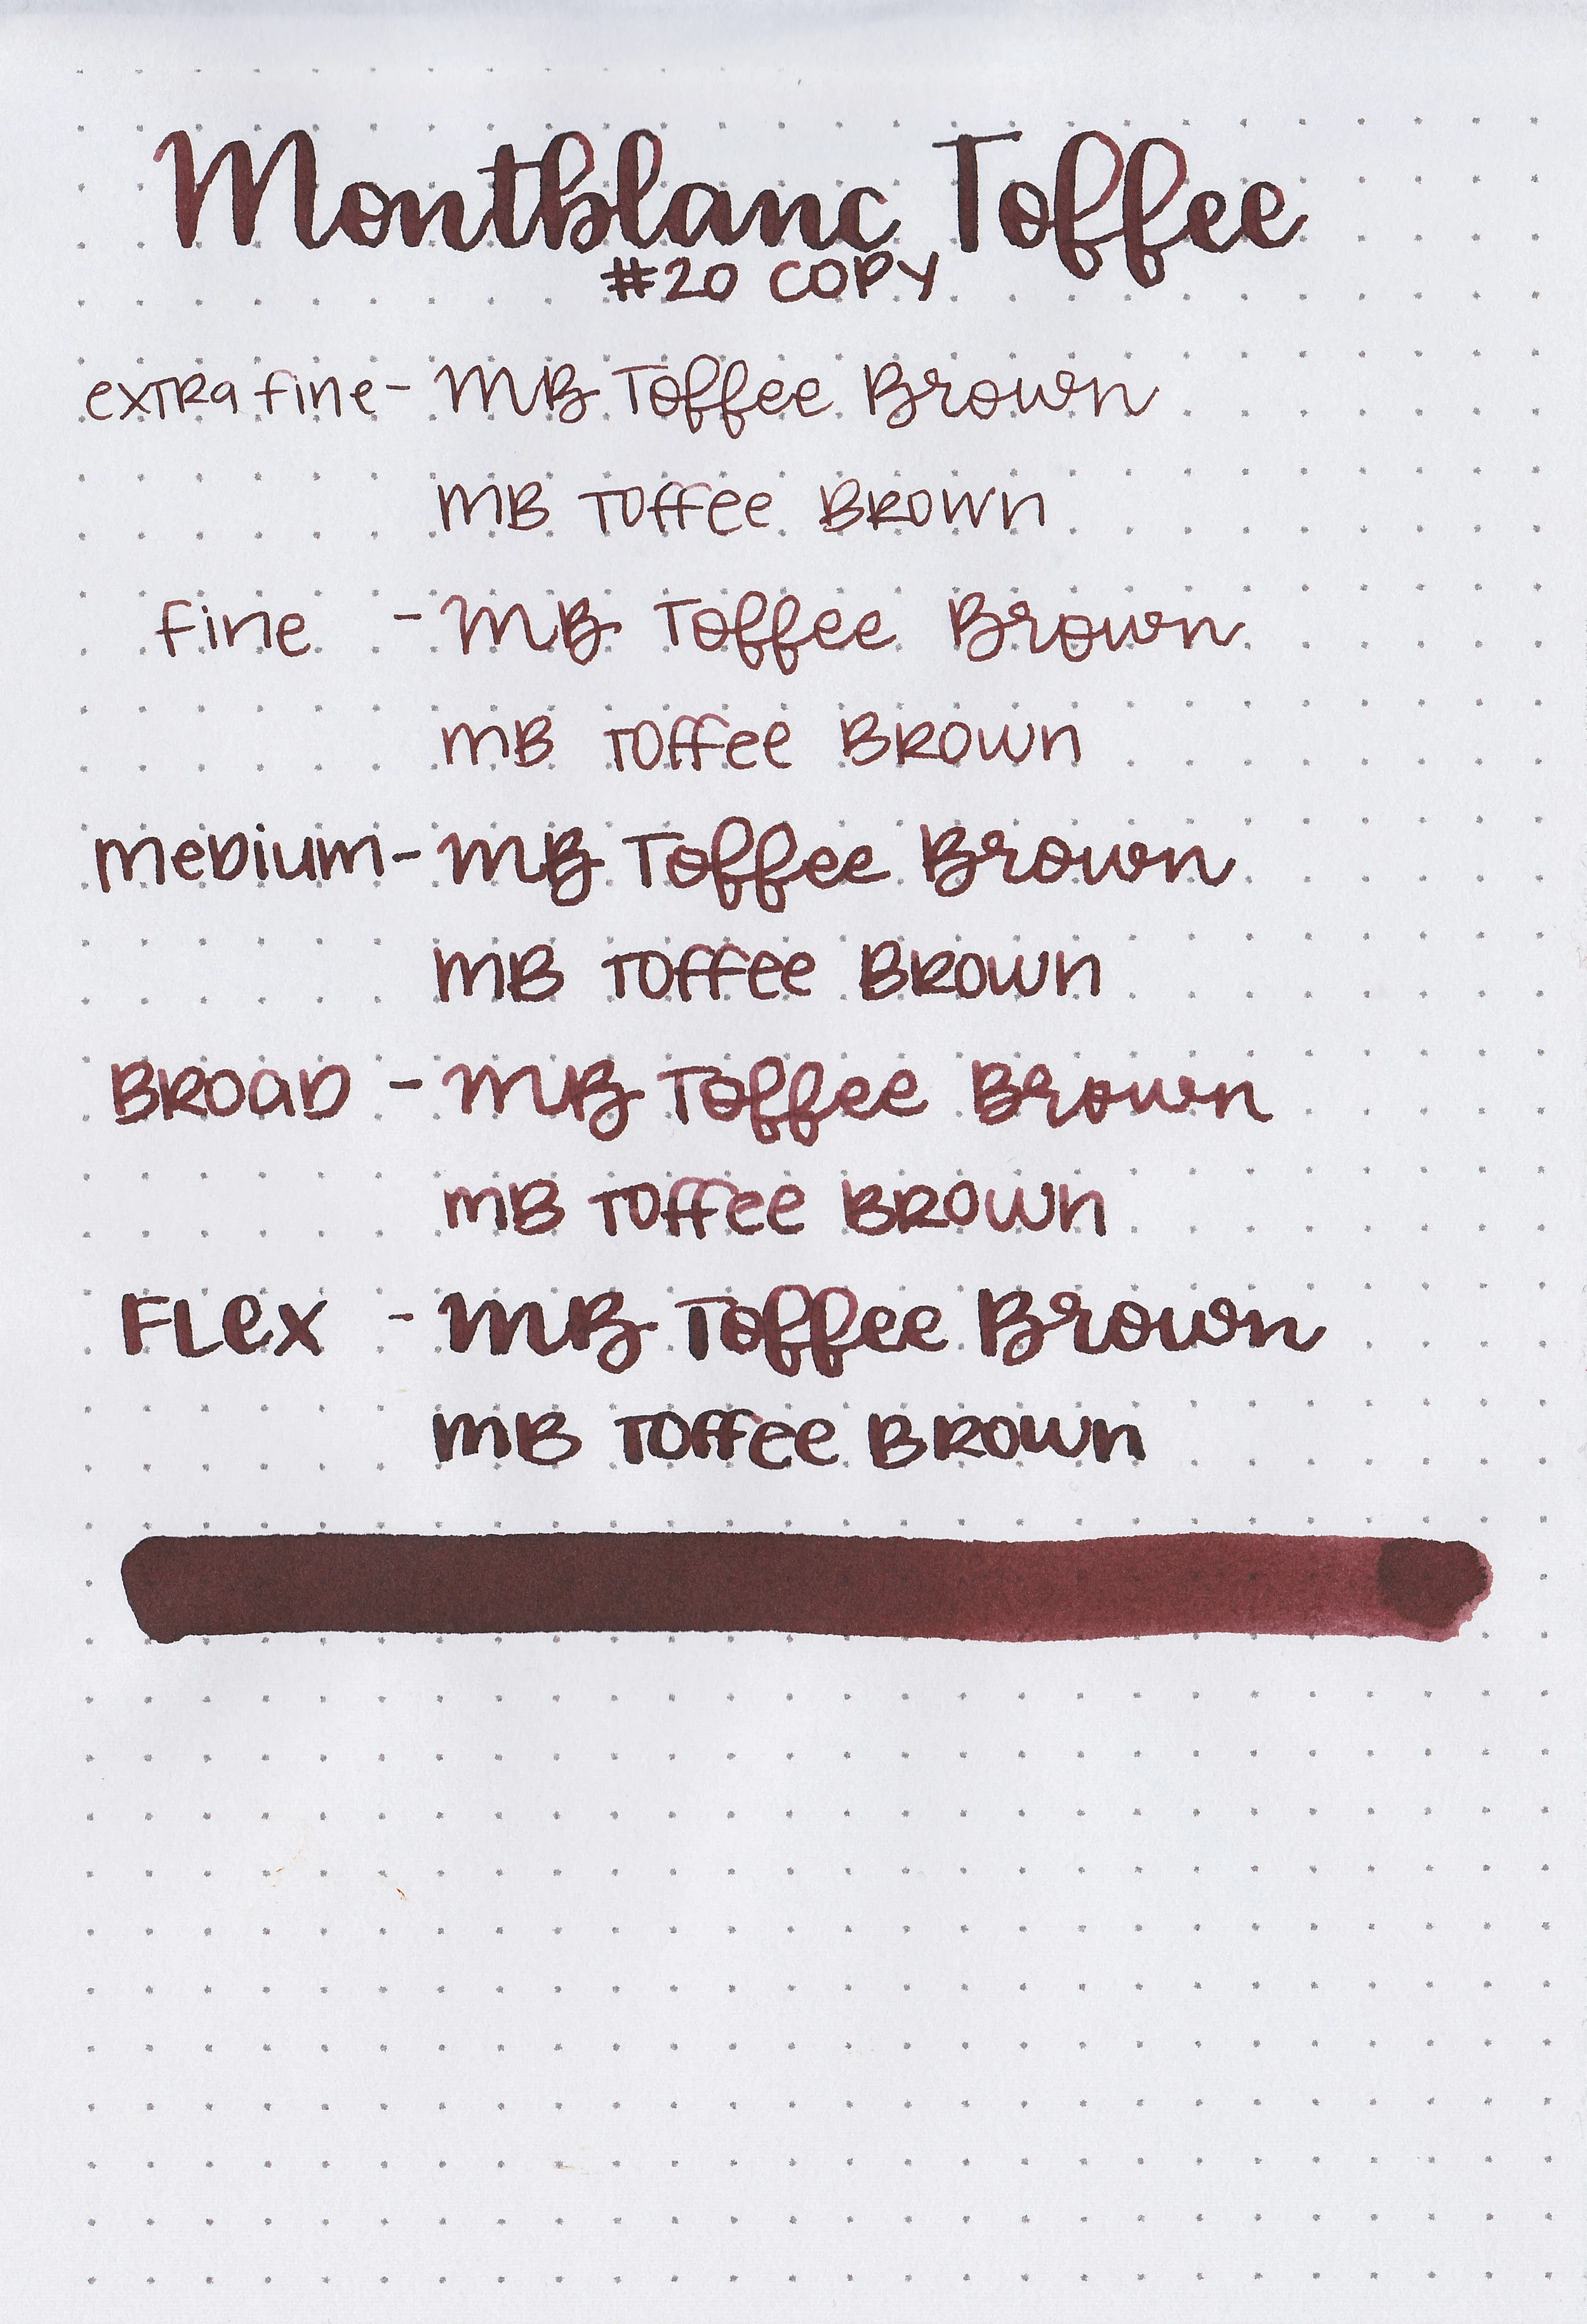 Montblanc Toffee
#20 COPY
extra fine - MB Toffee Brown
MB Toffee Brown
fine - MB Toffee Brown
MB Toffee Brown
Medium - MB Toffee Brown
MB Toffee Brown
Broad - MB Toffee Brown
MB Toffee Brown
Flex - MB Toffee Brown
MB Toffee Brown